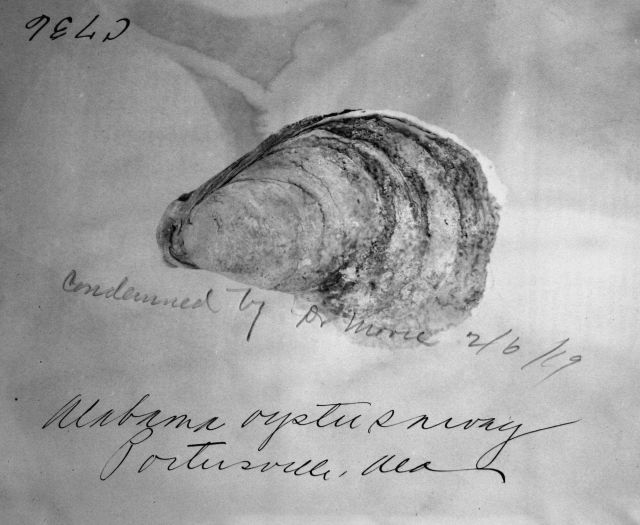 C736
Condemned by Dr Moore 2/6/19
Alabama oyster survey
Portersville, Ala